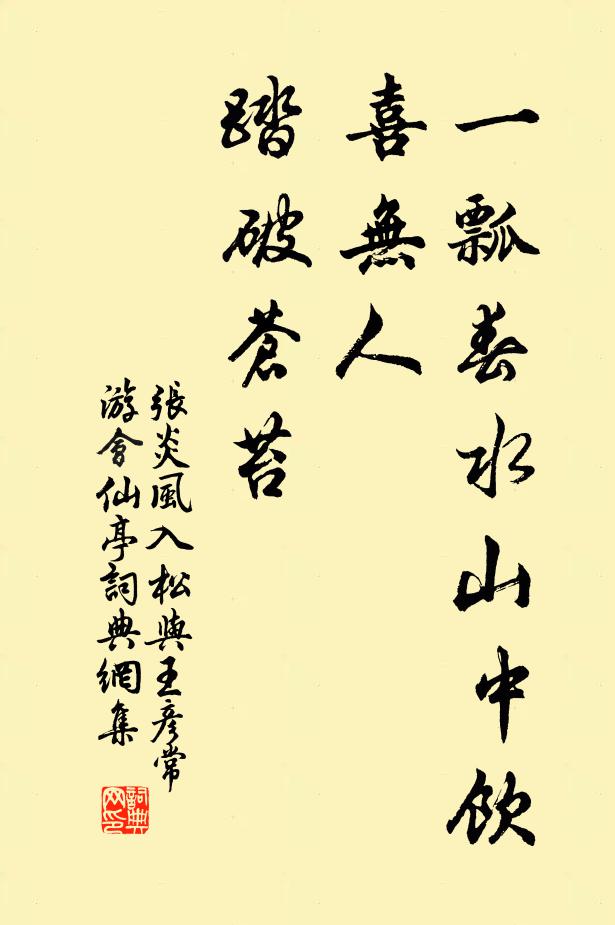 一瓢春水山中飲
喜無人
踏破蒼苔
張炎風入松與王彥常
游會仙亭詞典網集
詞典
网印